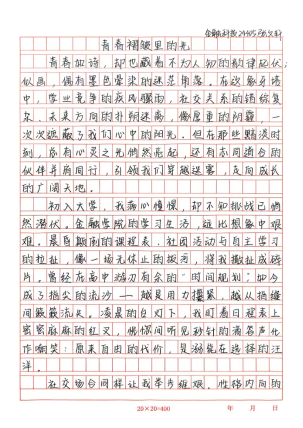 金融科技24405 张文科
青春褶皱里的光
青春如诗，却也藏着不为人知的韵律起伏；
似画，偶有墨色晕染的迷茫角落。在这象牙塔
中，学业竞争的疾风骤雨、社交关系的错综复
杂、未来方向的扑朔迷离，像层重的阴霾，一
次次遮蔽了我们心中的阳光。但在那些黯淡时
刻，总有心灵之光悄然亮起，还有志同道合的
伙伴并肩同行，引领我们穿越迷雾，走向成长
的广阔天地。
初入大学，我满心憧憬，却不知挑战已悄
然潜伏。金融学院的学习生活，远比想象中艰
难。晨昏颠倒的课程表、社团活动与自主学习
的拉扯，像一场无休止的拔河，将我撕扯成碎
片。曾经在高中游刃有余的“时间规划”如今
成了指尖的流沙——越是用力攥紧，越从指缝
间簌簌流失。凌晨的台灯下，我盯着日程表上
密密麻麻的红叉，恍惚间听见秒针的滴答声化
作嘲笑：原来自由的代价，是溺毙在选择的汪
洋。
社交场合同样让我举步维艰，性格内向的
20×20=400
年 月 日